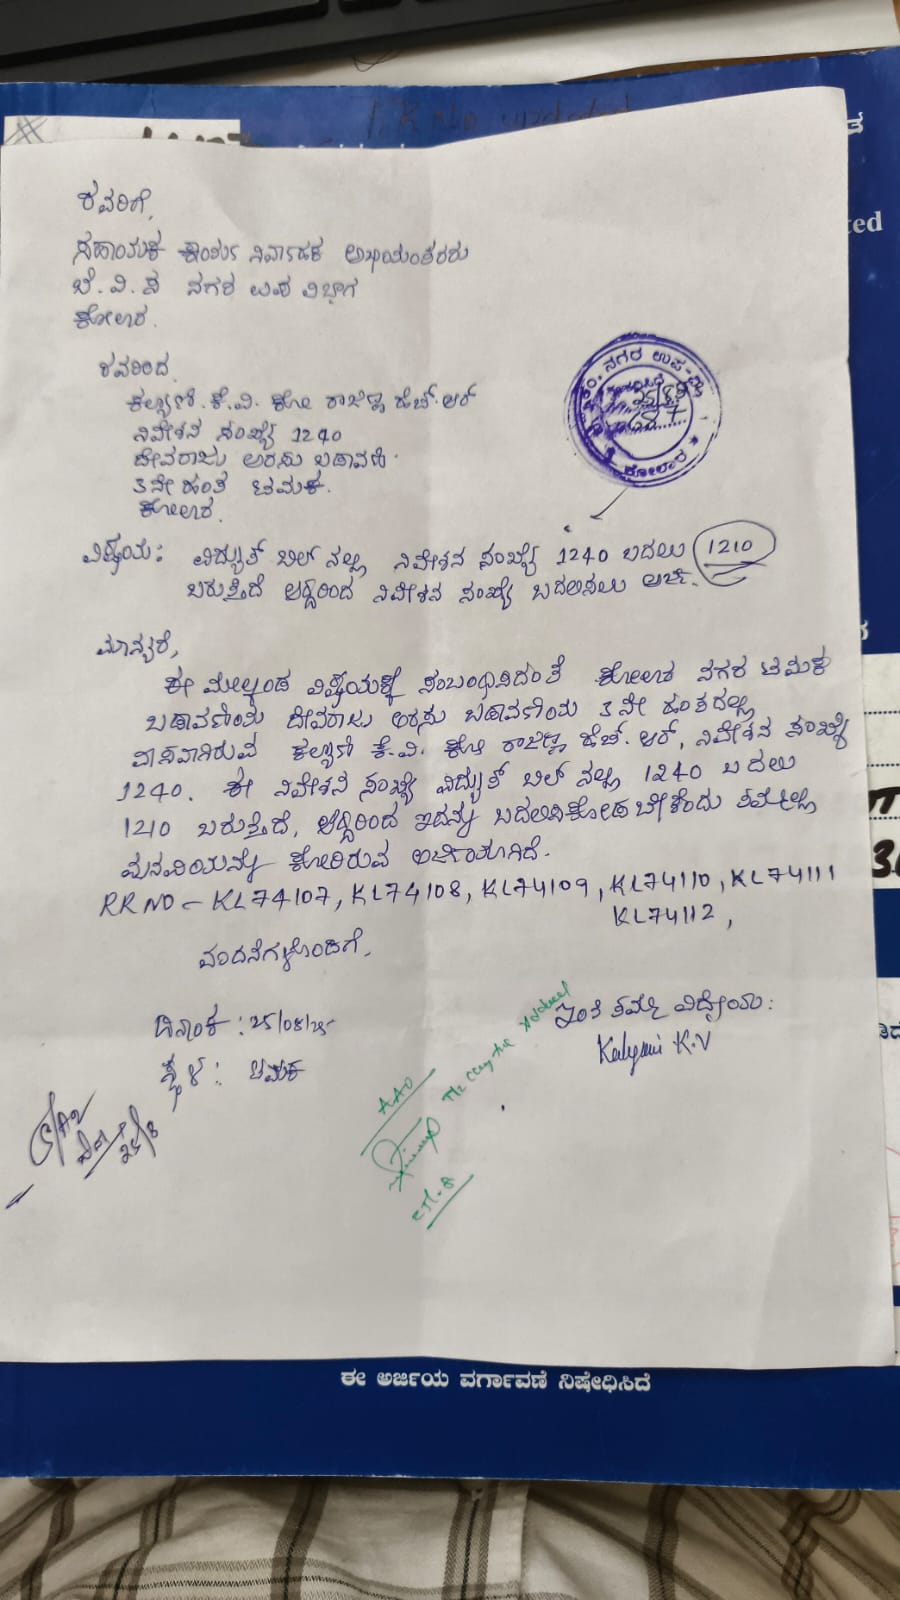 ರವರಿಗೆ,
ಸಹಾಯಕ ಕಾರ್ಯ ನಿರ್ವಾಹಕ ಅಭಿಯಂತರರು
ಬೆ.ವಿ.ಸ ನಗರ ಉಪ ವಿಭಾಗ
ಕೋಲಾರ.
ರವರಿಂದ
ಕಲ್ಯಾಣಿ.ಕೆ.ವಿ. ಕೋ ರಾಜಣ್ಣ ಹೆಚ್.ಆರ್
ನಿವೇಶನ ಸಂಖ್ಯೆ 1240
ದೇವರಾಜು ಅರಸು ಬಡಾವಣೆ.
3ನೇ ಹಂತ ಟಮಕ.
ಕೋಲಾರ.
ನಗರ ಉಪ
ಕೋಲಾರ
ವಿಷಯ: ವಿದ್ಯುತ್ ಬಿಲ್ ನಲ್ಲಿ ನಿವೇಶನ ಸಂಖ್ಯೆ 1240 ಬದಲು 1210
ಬರುತ್ತಿದೆ ಆದ್ದರಿಂದ ನಿವೇಶನ ಸಂಖ್ಯೆ ಬದಲಿಸಲು ಅರ್ಜಿ.
ಮಾನ್ಯರೆ,
ಈ ಮೇಲ್ಕಂಡ ವಿಷಯಕ್ಕೆ ಸಂಬಂಧಿಸಿದಂತೆ ಕೋಲಾರ ನಗರ ಟಮಕ
ಬಡಾವಣೆಯ ದೇವರಾಜು ಅರಸು ಬಡಾವಣೆಯ 3ನೇ ಹಂತದಲ್ಲಿ
ವಾಸವಾಗಿರುವ ಕಲ್ಯಾಣಿ ಕೆ.ವಿ. ಕೋ ರಾಜಣ್ಣ ಹೆಚ್.ಆರ್, ನಿವೇಶನ ಸಂಖ್ಯೆ
1240. ಈ ನಿವೇಶನ ಸಂಖ್ಯೆ ವಿದ್ಯುತ್ ಬಿಲ್ ನಲ್ಲಿ 1240 ಬದಲು
1210 ಬರುತ್ತಿದೆ, ಆದ್ದರಿಂದ ಇದನ್ನು ಬದಲಿಸಿಕೊಡಬೇಕೆಂದು ತಮ್ಮಲ್ಲಿ
ಮನವಿಯನ್ನು ಕೋರಿರುವ ಅರ್ಜಿಯಾಗಿದೆ.
RR NO - KL74107, KL74108, KL74109, KL74110, KL74111
KL74112,
ವಂದನೆಗಳೊಂದಿಗೆ,
ದಿನಾಂಕ: 25/08/25
ಇಂತಿ ತಮ್ಮ ವಿಧೇಯ:
Kalyani K.V
ಸ್ಥಳ: ಟಮಕ
AAO
ಈ ಅರ್ಜಿಯ ವರ್ಗಾವಣೆ ನಿಷೇಧಿಸಿದೆ